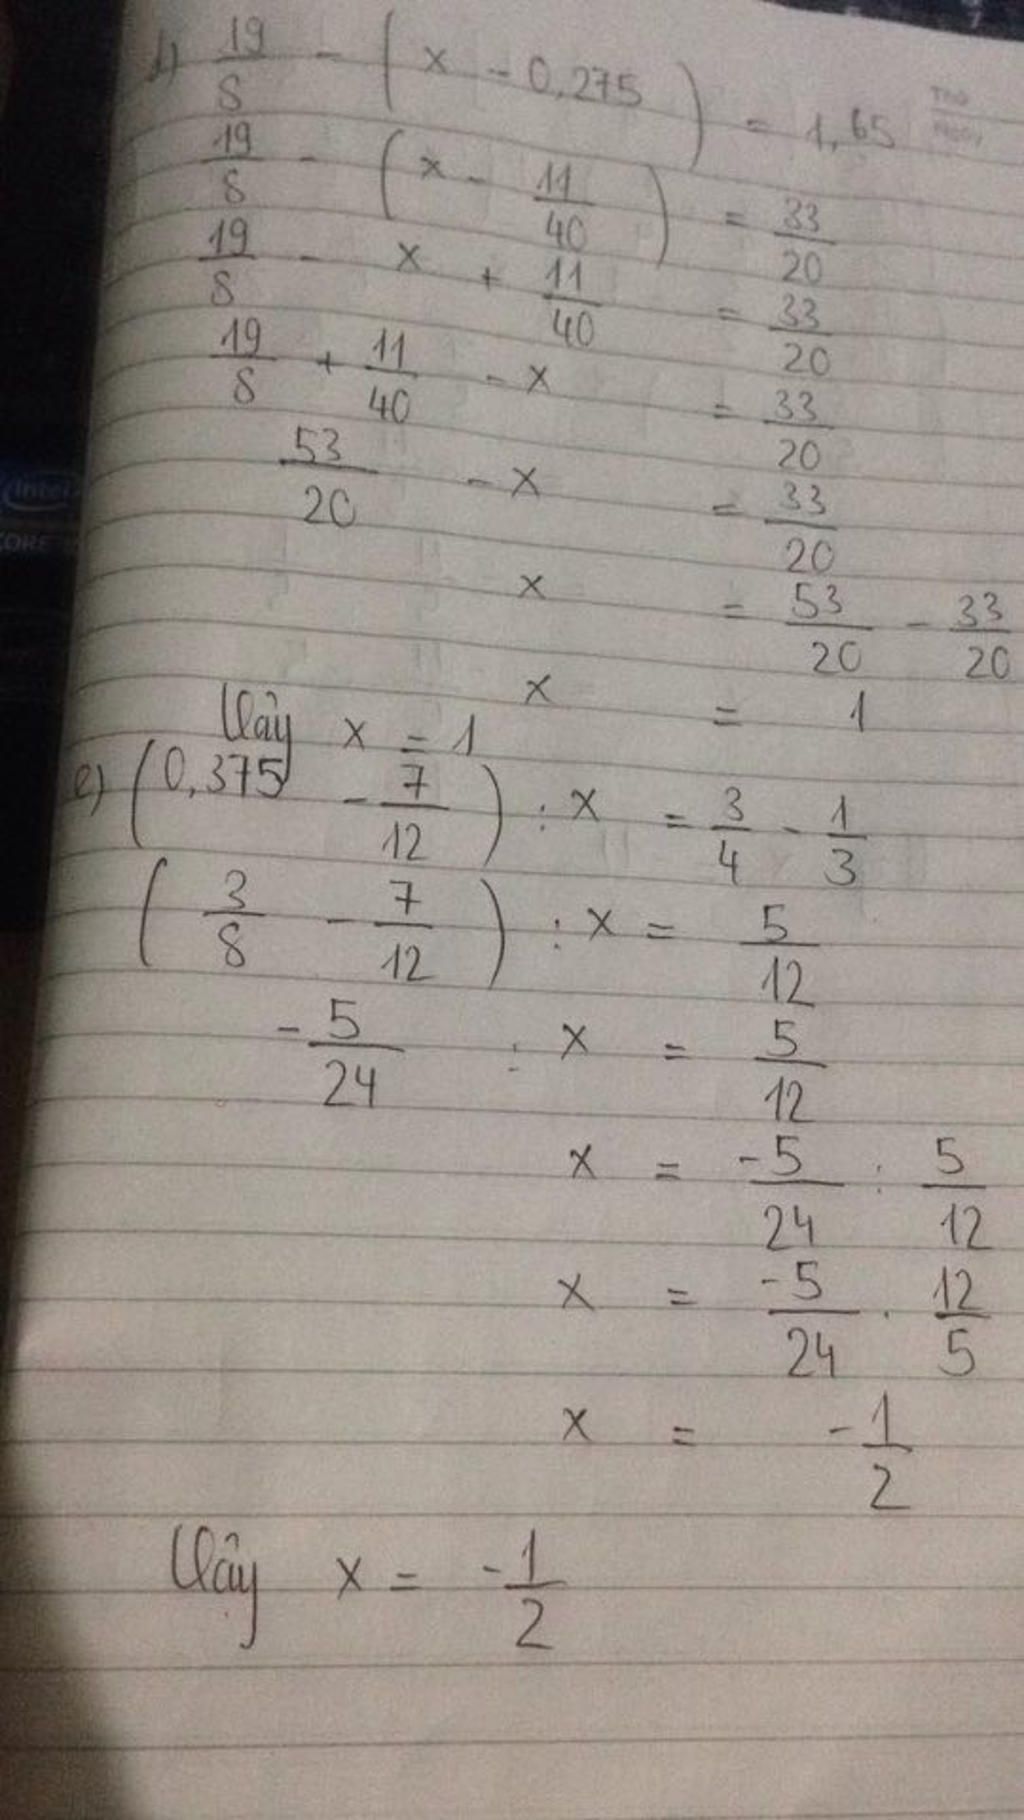 19/8 - (x - 0,275) = 1,65
19/8 - (x - 11/40) = 33/20
19/8 - x + 11/40 = 33/20
19/8 + 11/40 - x = 33/20
53/20 - x = 33/20
x = 53/20 - 33/20
x = 1
Vậy x = 1
e) (0,375 - 7/12) : x = 3/4 - 1/3
(3/8 - 7/12) : x = 5/12
-5/24 : x = 5/12
x = -5/24 : 5/12
x = -5/24 . 12/5
x = -1/2
Vậy x = -1/2
intel
CORE